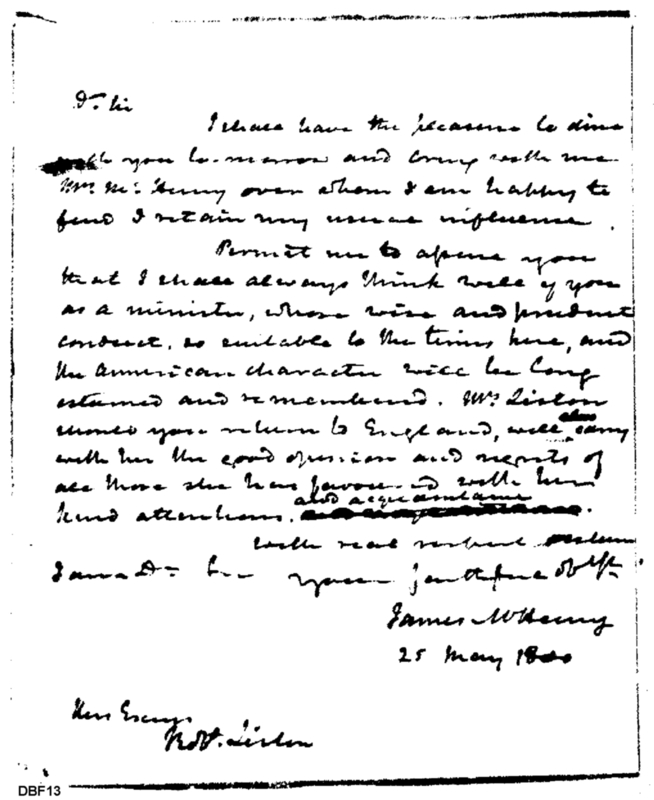 Dr Sir
I shall have the pleasure to dine
with you to-morrow and bring with me
Mrs. McHenry over whom I am happy to
find I retain my usual influence.
Permit me to assure you
that I shall always think well of you
as a minister, whose wise and prudent
conduct, so suitable to the times here, and
the American character will be long
esteemed and remembered. Mrs Liston
should you return to England, will also carry
with her the good opinion and regrets of
all those she has favoured with her
and acquaintance
kind attentions.
With real respect
I am Dr Sir your faithful obt st
James McHenry
25 May 1800
His Excy
Robt. Liston
DBF13